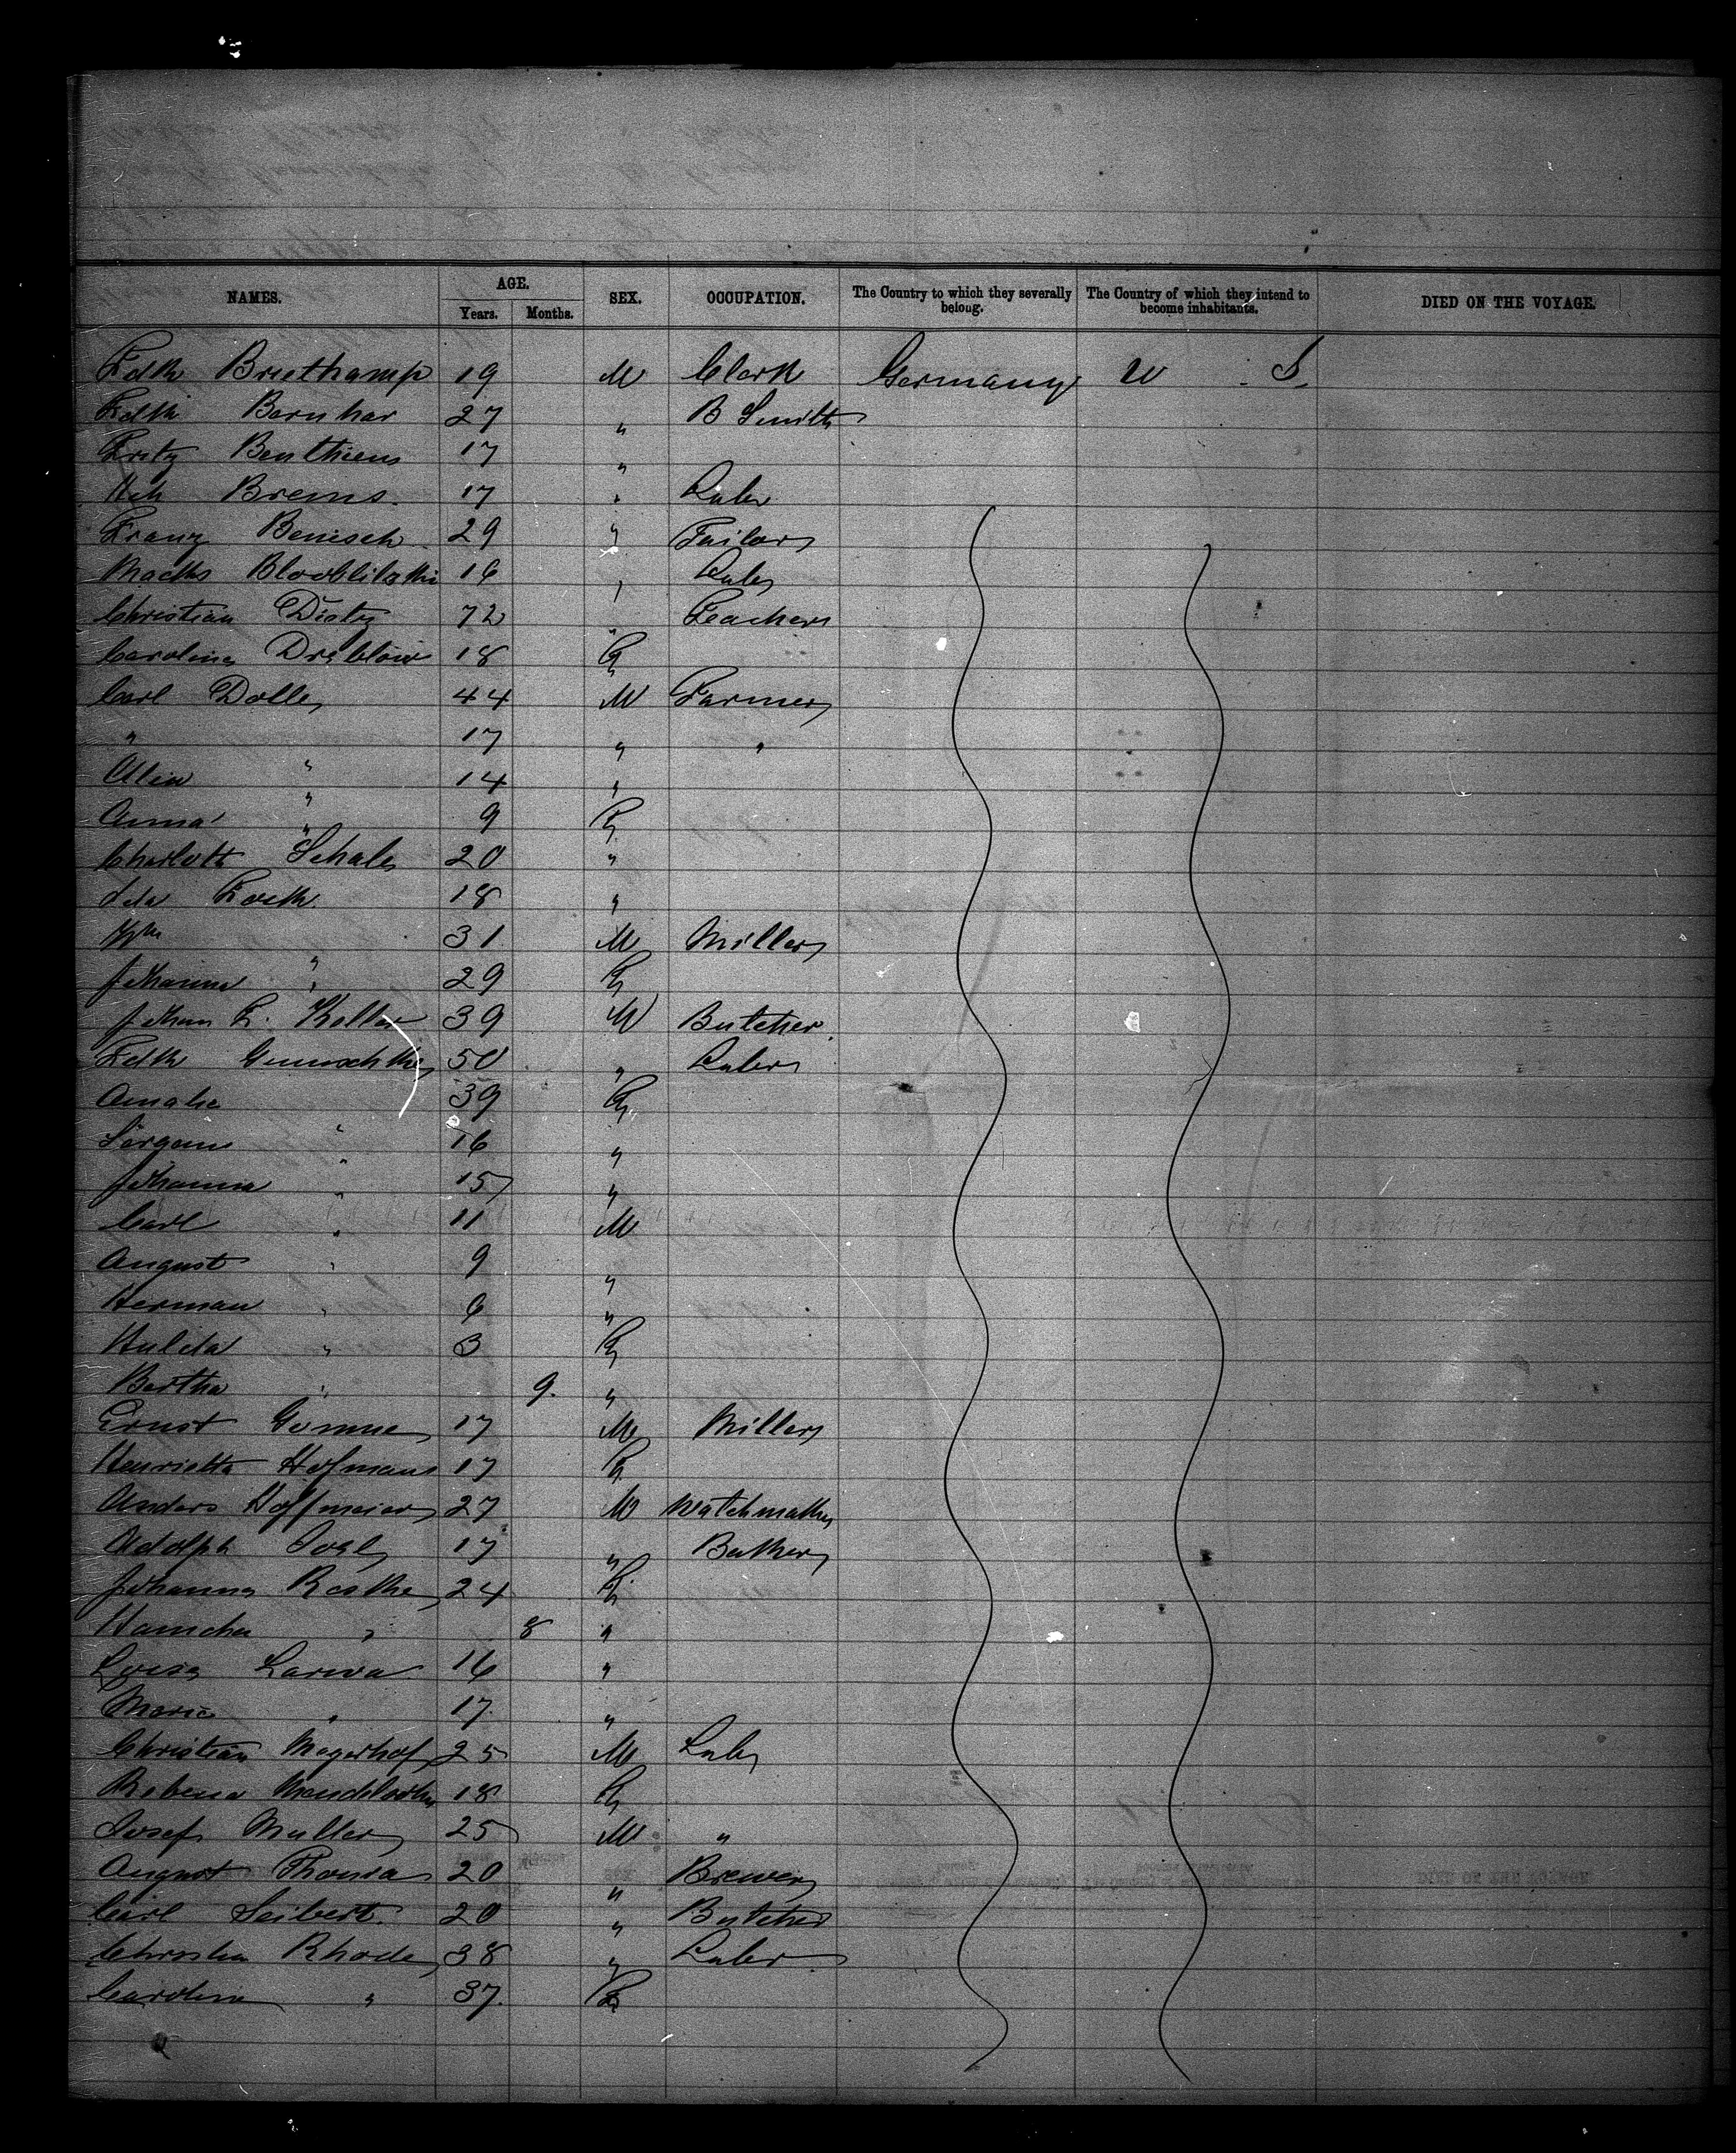 NAMES. AGE. SEX. OCCUPATION. The Country to which they severally belong. The Country of which they intend to become inhabitants. DIED ON THE VOYAGE.
Years. Months.
Fdk Briethamp 19 M Clerk Germany U. S.
Fdk Bernhar 27 " B Smith
Fritz Benthiens 17 "
Hch Brems 17 " Labr
Franz Benesch 29 " Tailor
16 " Labr
Christian Dietz 72 " Teacher
Carolina 18 F
Carl Dolle 44 M Farmer
" 17 " "
14 "
Anna " 9 F
Charlott Schale 20 "
Ida 18 "
Wm " 31 M Miller
Johanna " 29 F
Johan Keller 39 M Butcher
Fdk 50 " Labr
Amalie 39 F
" 16 "
Johanna " 15 "
Carl " 11 M
August " 9 "
Herman " 6 "
Hulda " 3 F
Bertha " 9 "
Ernst 17 M Miller
Henrietta Hofmann 17 F
Anders Hoffmeier 27 M Watchmaker
Adolph 17 " Baker
Johanna 24 F
" 8 "
Louisa Larwa 16 "
Marie " 17 "
Christian Mayerhof 25 M Labr
18 F
Josef Muller 25 M "
August 20 " Brewer
Carl Seibert 20 " Butcher
Christian Rhode 38 " Labr
Carolina " 37 F